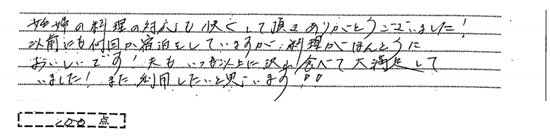 妊婦の料理の対応も快くして頂きありがとうございました!
以前にも何回か宿泊をしていますが、料理がほんとうに
おいしいです!夫もいつも以上に沢山食べて大満足して
いました!また利用したいと思います!!
200点